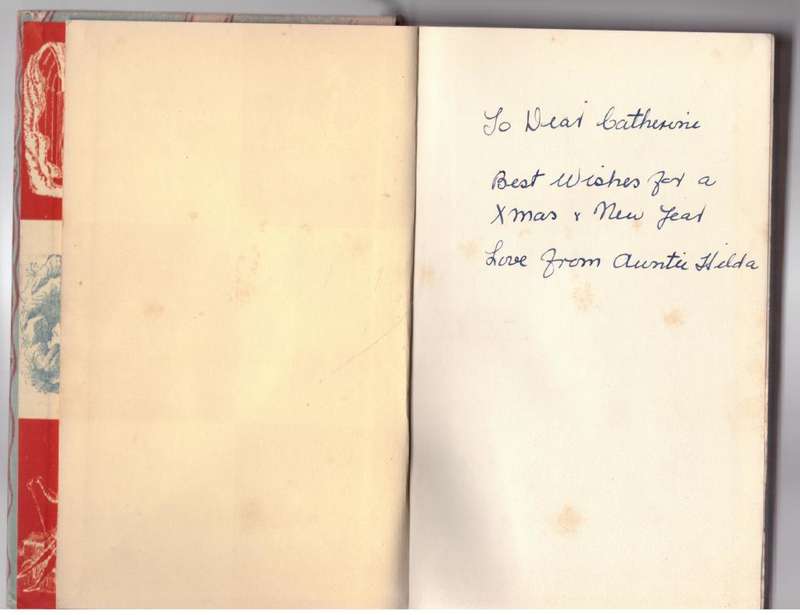 To Dear Catherine
Best Wishes for a
Xmas & New Year
Love from Auntie Hilda